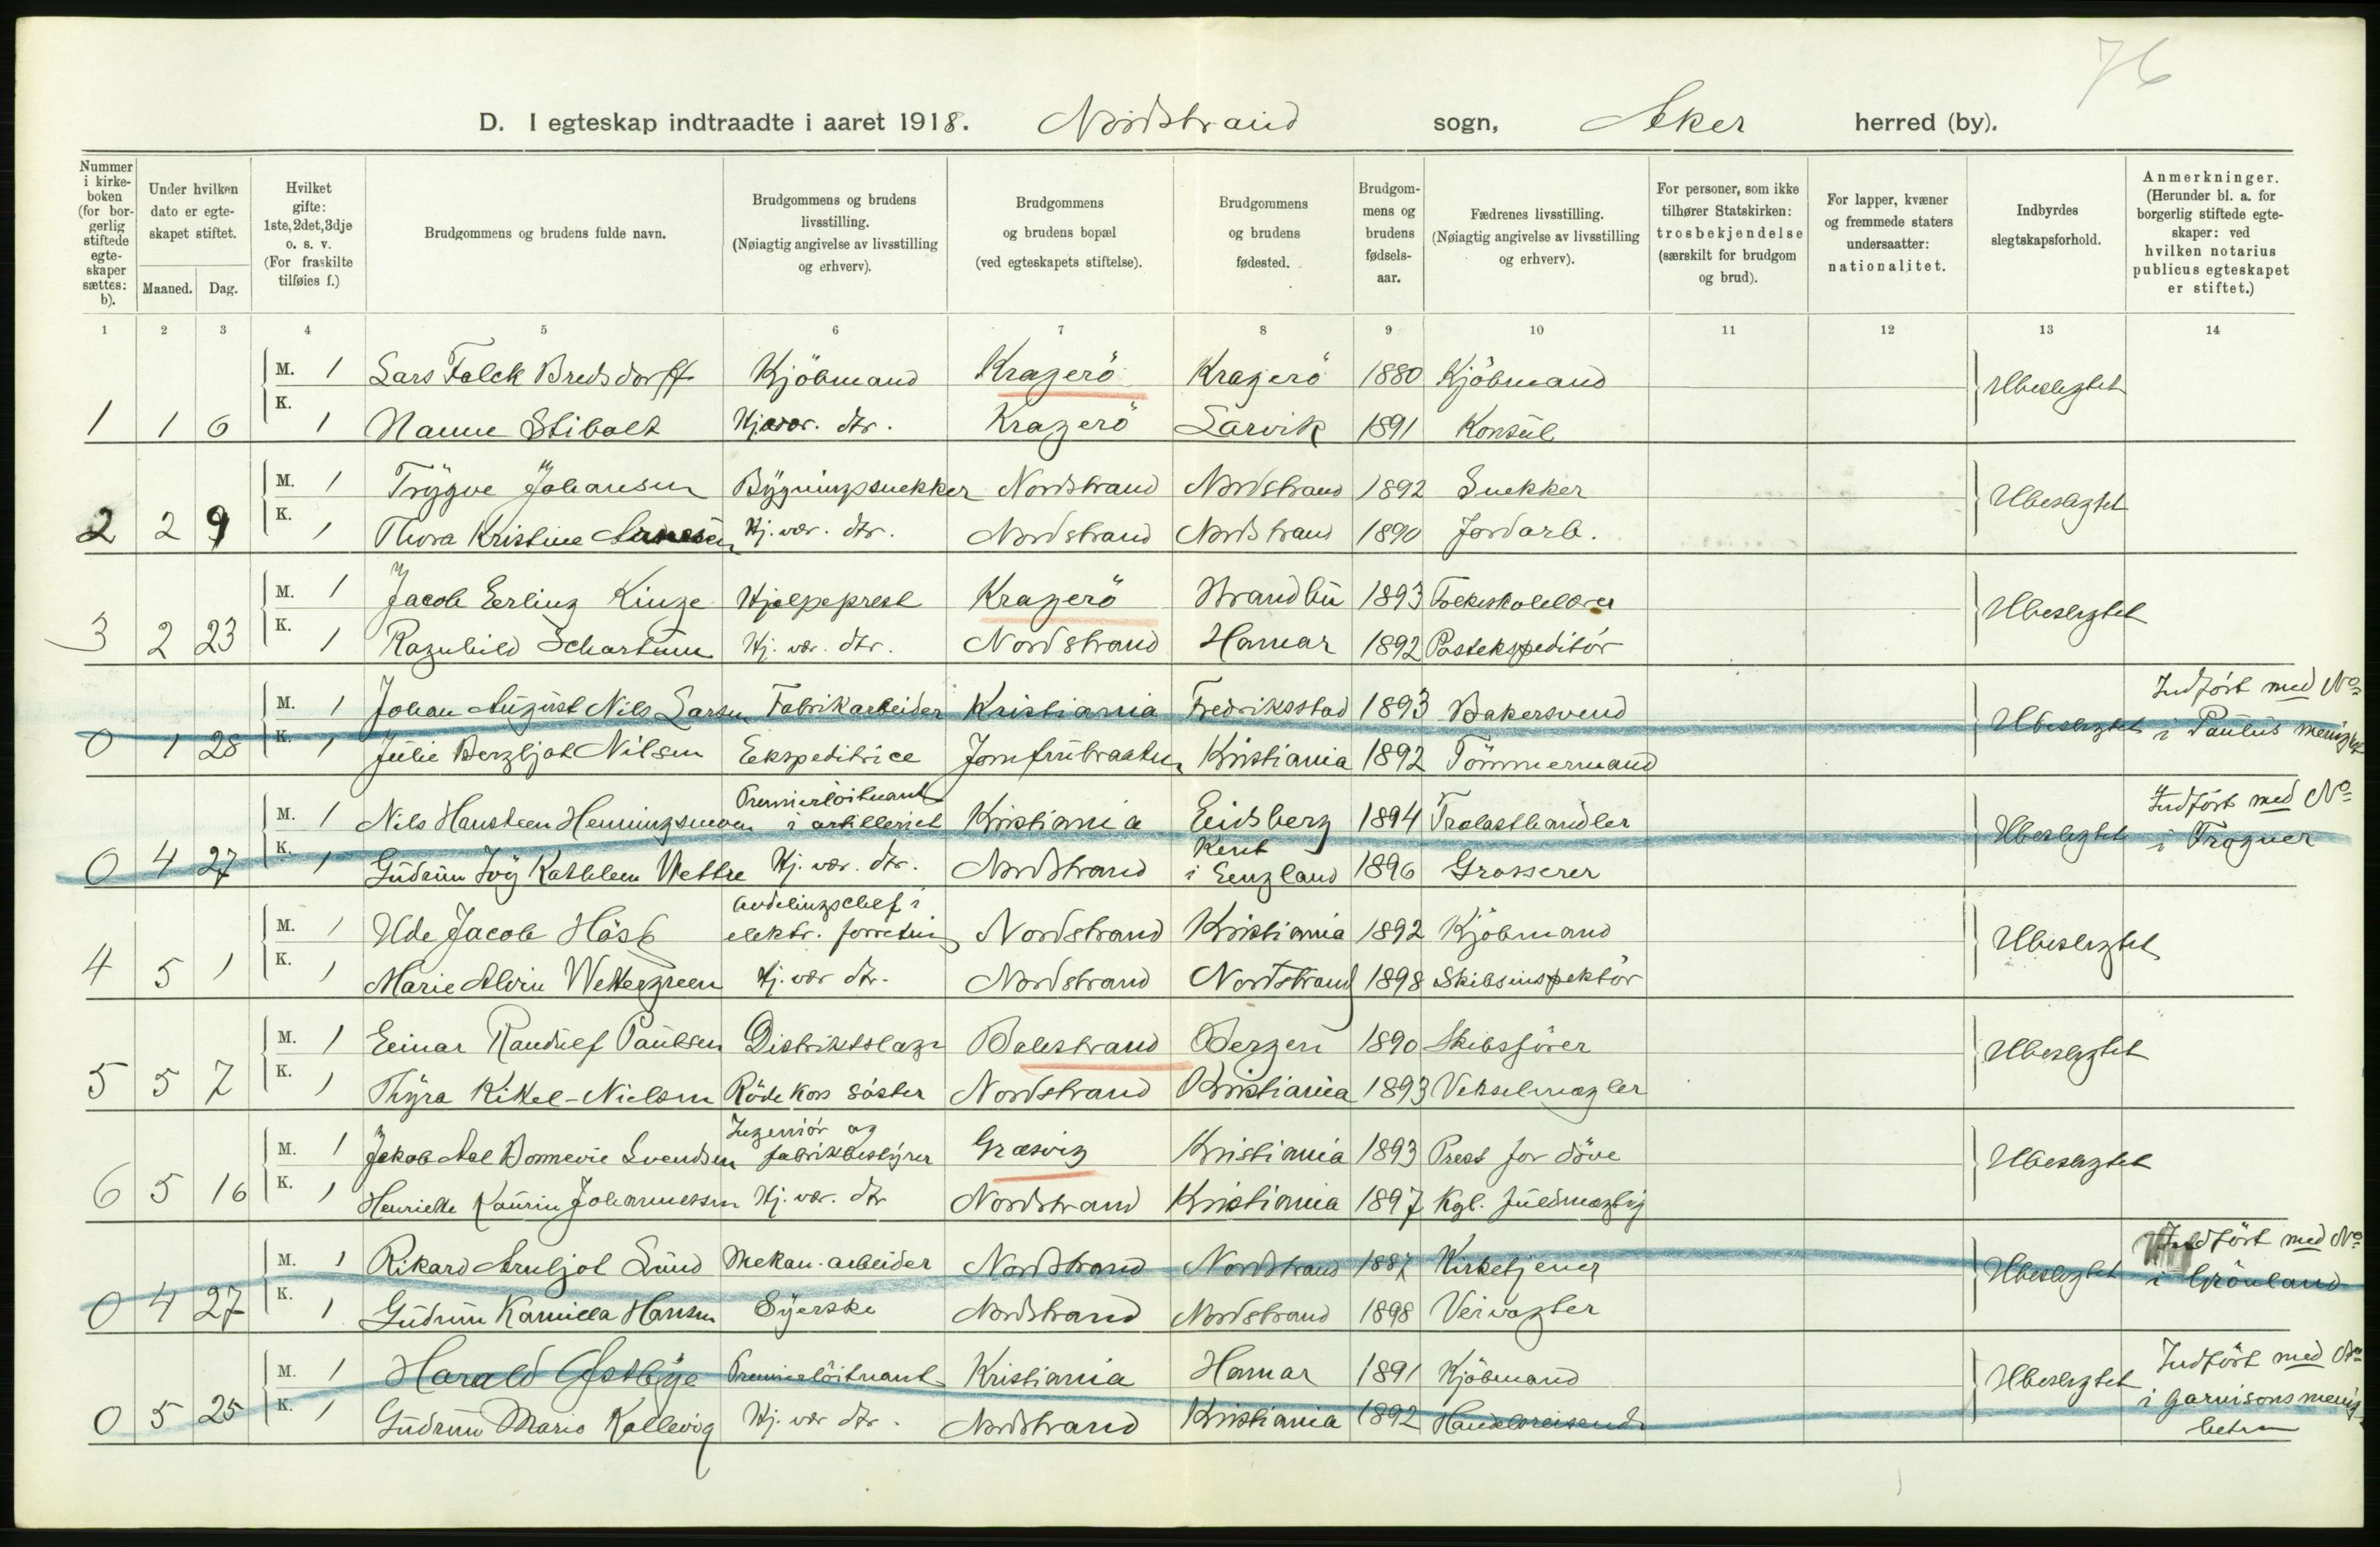 76
D. I egteskap indtraadte i aaret 1918. Nordstrand sogn, Aker herred (by).
Nummer i kirke-boken (for bor-gerlig stiftede egte-skaper sættes: b).
Under hvilken dato er egte-skapet stiftet.
Maaned. Dag.
Hvilket gifte: 1ste, 2det, 3dje o. s. v. (For fraskilte tilføies f.)
Brudgommens og brudens fulde navn.
Brudgommens og brudens livsstilling. (Nøiagtig angivelse av livsstilling og erhverv).
Brudgommens og brudens bopæl (ved egteskapets stiftelse).
Brudgommens og brudens fødested.
Brudgom-mens og brudens fødsels-aar.
Fædrenes livsstilling. (Nøiagtig angivelse av livsstilling og erhverv).
For personer, som ikke tilhører Statskirken: trosbekjendelse (særskilt for brudgom og brud).
For lapper, kvæner og fremmede staters undersaatter: nationalitet.
Indbyrdes slegtskapsforhold.
Anmerkninger. (Herunder bl. a. for borgerlig stiftede egte-skaper: ved hvilken notarius publicus egteskapet er stiftet.)
1 2 3 4 5 6 7 8 9 10 11 12 13 14
M. 1 Lars Falck Bredsdorff Kjöbmand Kragerö Kragerö 1880 Kjöbmand Ubeslegtet
1 1 6 K. 1 Nanne Stibolt Hj. vær. dtr. Kragerö Larvik 1891 Konsul
M. 1 Trygve Johansen Bygningssnekker Nordstrand Nordstrand 1892 Snekker Ubeslegtet
2 2 9 K. 1 Thora Kristine Arnesen Hj. vær. dtr. Nordstrand Nordstrand 1890 Jordarb.
M. 1 Jacob Erling Kinge Hjelpeprest Kragerö Strandbu 1893 Folkeskolelærer Ubeslegtet
3 2 23 K. 1 Ragnhild Schartum Hj. vær. dtr. Nordstrand Hamar 1892 Postekspeditör
M. 1 Johan August Nils Larsen Fabrikarbeider Kristiania Fredriksstad 1893 Bakersvend Ubeslegtet Indfört med No i Paulus menighet
0 1 28 K. 1 Julie Bergljot Nilsen Ekspeditrice Jomfrubraaten Kristiania 1892 Tömmermand
M. 1 Nils Hansteen Henningsmoen Premierlöitnant i artilleriet Kristiania Eidsberg 1894 Trælasthandler Ubeslegtet Indfört med No i Frogner
0 4 27 K. 1 Gudrun Ivy Kathleen Wettre Hj. vær. dtr. Nordstrand Kent i England 1896 Grosserer
M. 1 Ude Jacob Höst Avdelingschef i elektr. forretning Nordstrand Kristiania 1892 Kjöbmand Ubeslegtet
4 5 1 K. 1 Marie Alvin Wettergreen Hj. vær dtr. Nordstrand Nordstrand 1898 Skibsinspektör
M. 1 Einar Randulf Paulsen Distriktslæge Balestrand Bergen 1890 Skibsförer Ubeslegtet
5 5 7 K. 1 Thyra Kittel-Nielsen Röde Kors söster Nordstrand Kristiania 1893 Vekselmægler
M. 1 Jakob Aal Bonnevie Svendsen Ingeniör og fabrikbestyrer Græsvig Kristiania 1893 Prest for döve Ubeslegtet
6 5 16 K. 1 Henriette Kaurin Johannessen Hj. vær. dtr Nordstrand Kristiania 1897 Kgl. fuldmægtig
M. 1 Rikard Arnljot Lund Mekan. arbeider Nordstrand Nordstrand 1887 Kirketjener Ubeslegtet Indfört med No i Grönland
0 4 27 K. 1 Gudrun Kamilla Hansen Syerske Nordstrand Nordstrand 1898 Veivogter
M. 1 Harald Östbye Premierlöitnant Kristiania Hamar 1891 Kjöbmand Ubeslegtet Indfört med No i Garnisonsmenigheten
0 5 25 K. 1 Gudrun Marie Kallevig Hj. vær dtr. Nordstrand Kristiania 1892 Handelsreisende